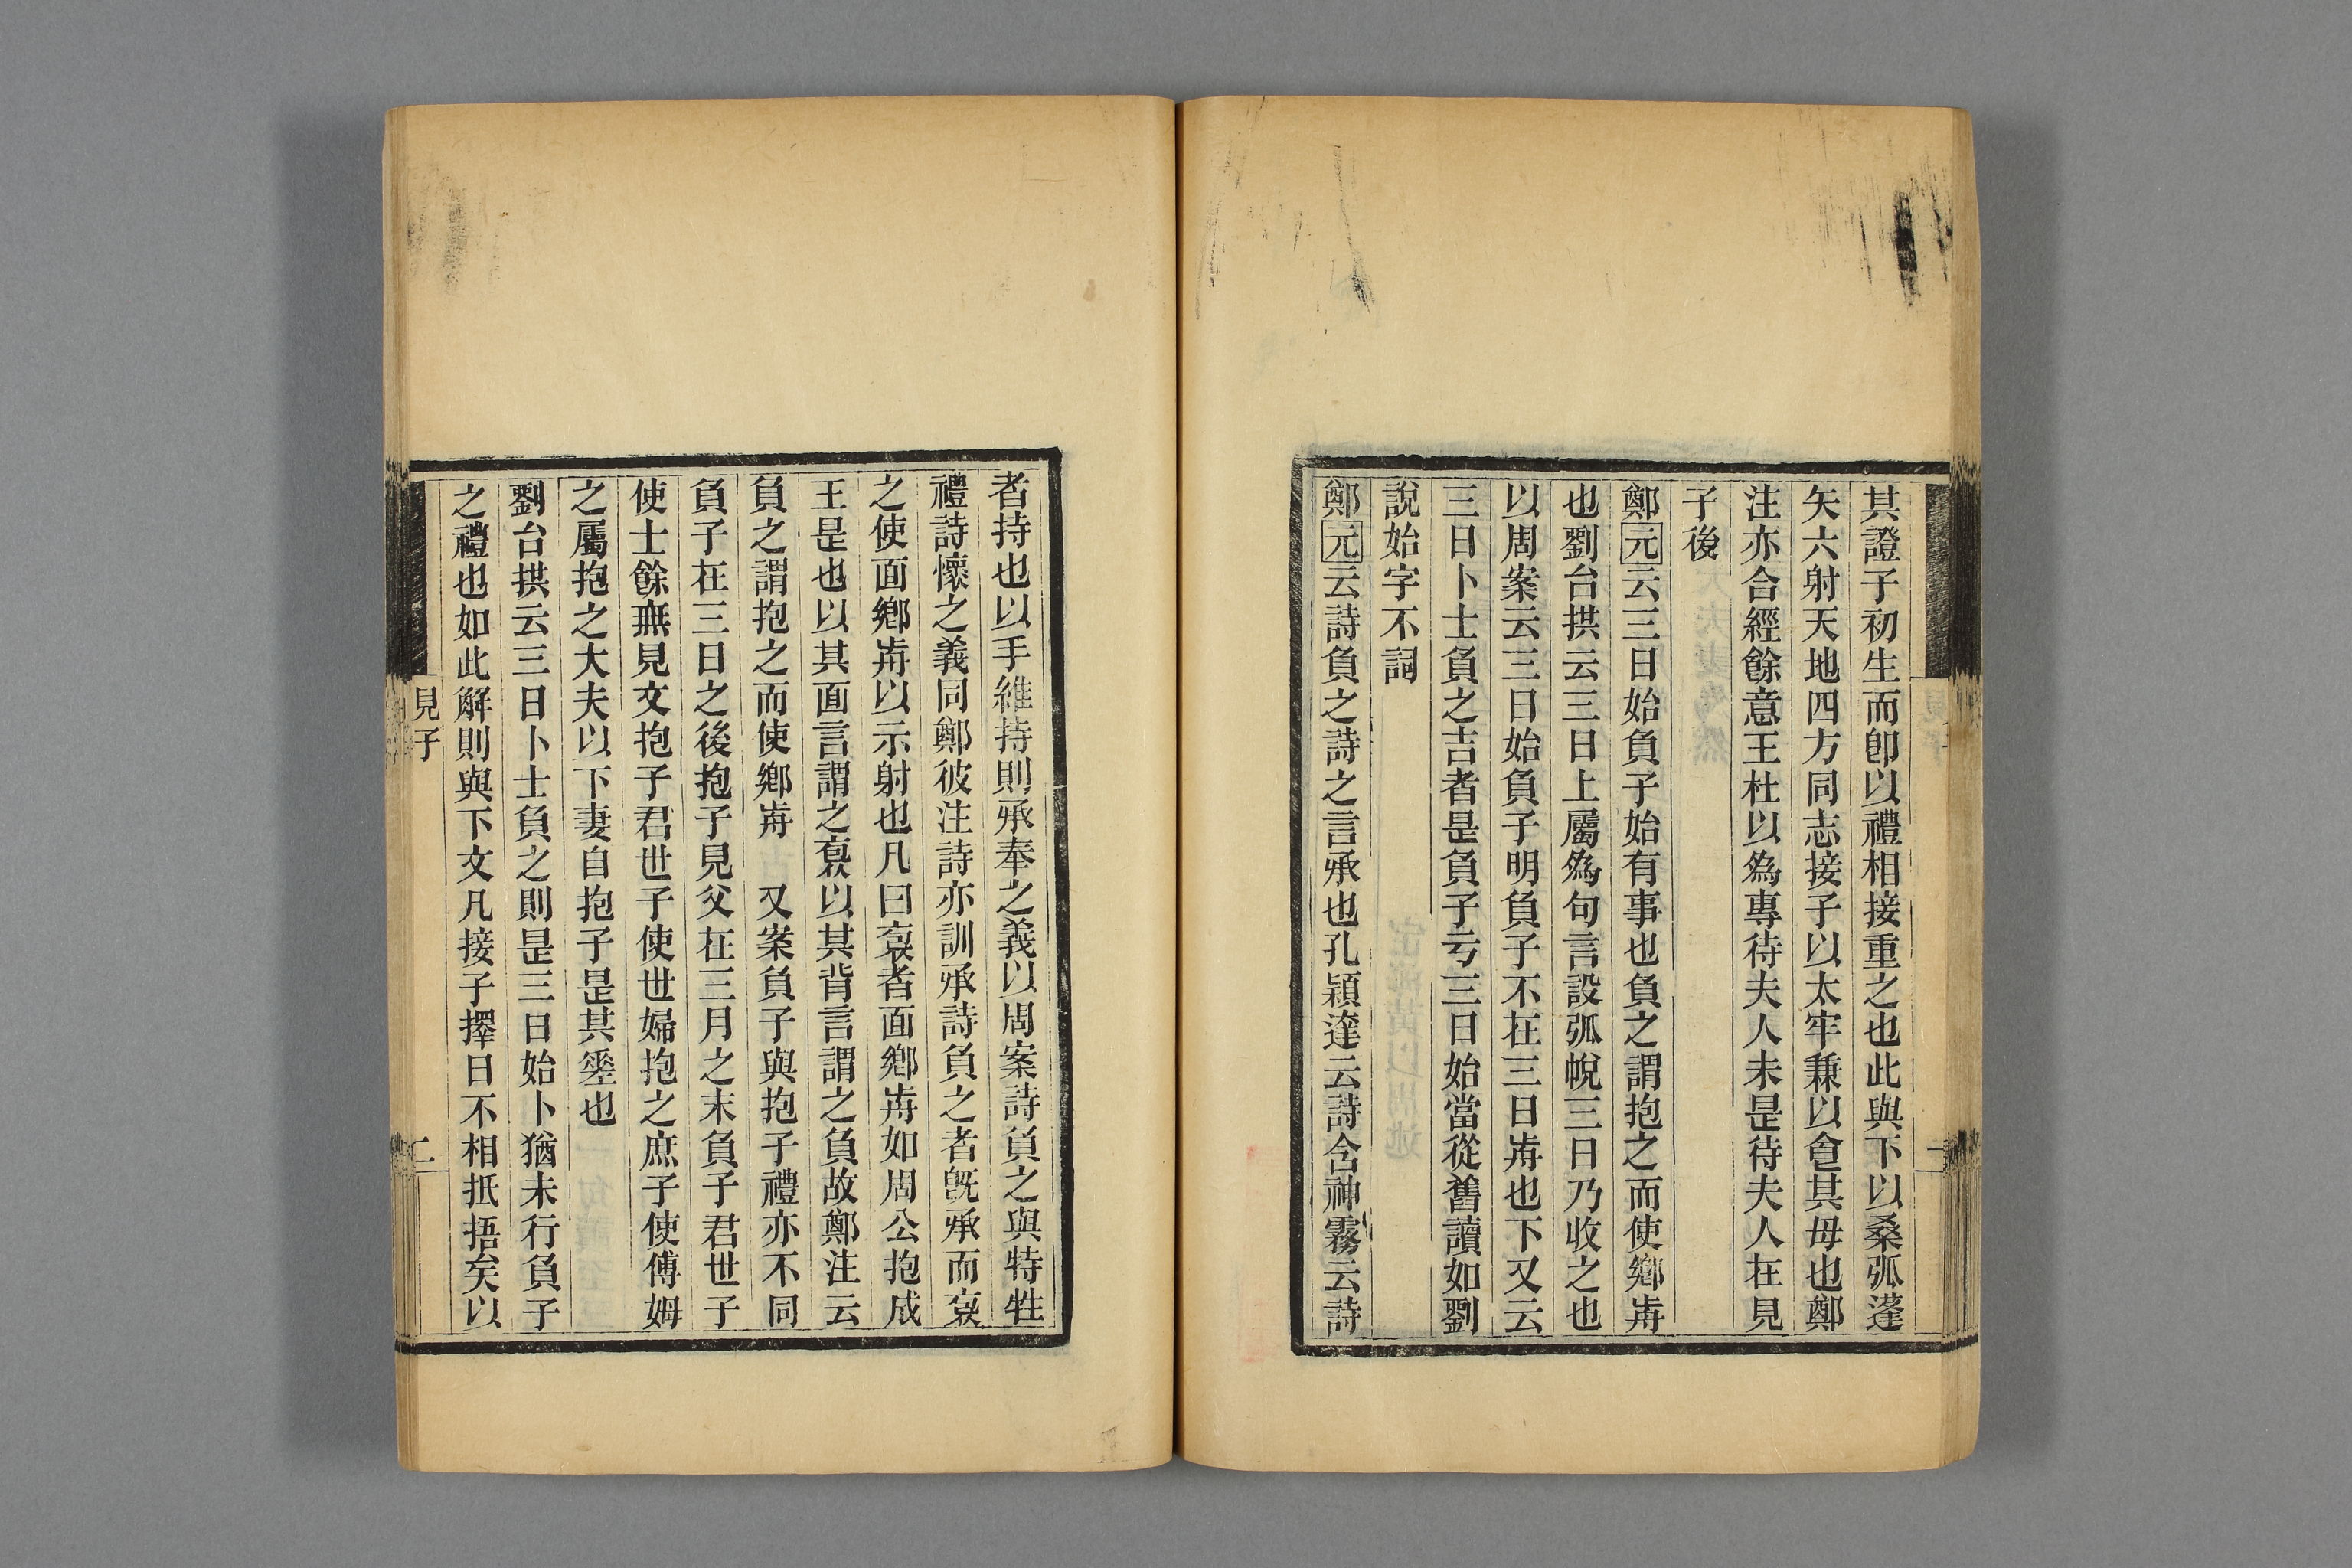 其證子初生而卽以禮相接重之也此與下以桑弧蓬
矢六射天地四方同志接子以太牢兼以𩚁其毋也鄭
注亦合經餘意王杜以爲專待夫人未是待夫人在見
子後
鄭元云三日始負子始有事也負之謂抱之而使鄉歬
也劉台拱云三日上屬爲句言設弧帨三日乃收之也
以周案云三日始負子明負子不在三日歬也下又云
三日卜士負之吉者是負子亏三日始當從舊讀如劉
說始字不詞
鄭元云詩負之詩之言承也孔穎達云詩含神霧云詩
者持也以手維持則承奉之義以周案詩負之與特牲
禮詩懷之義同鄭彼注詩亦訓承詩負之者旣承而褱
之使面鄉歬以示射也凡曰褱者面鄉歬如周公抱成
王是也以其面言謂之褱以其背言謂之負故鄭注云
負之謂抱之而使鄉歬 又案負子與抱子禮亦不同
負子在三日之後抱子見父在三月之末負子君世子
使士餘無見文抱子君世子使世婦抱之庶子使傅姆
之屬抱之大夫以下妻自抱子是其䇓也
劉台拱云三日卜士負之則是三日始卜猶未行負子
之禮也如此解則與下文凡接子擇日不相抵捂矣以
見子
二